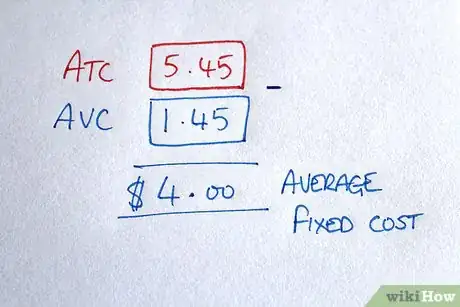 ATC 5.45 -
AVC 1.45
$ 4.00 AVERAGE
FIXED COST
wikiHow